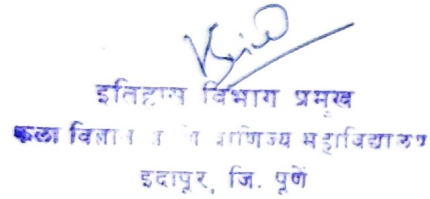 इतिहास विभाग प्रमुख
कला विज्ञान व वाणिज्य महाविद्यालय
इंदापूर, जि. पूणे